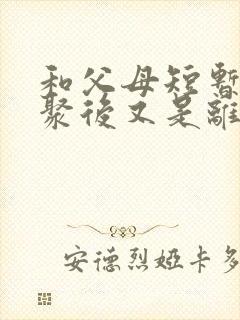 和父母短暫
聚後又是離
安德烈婭卡多